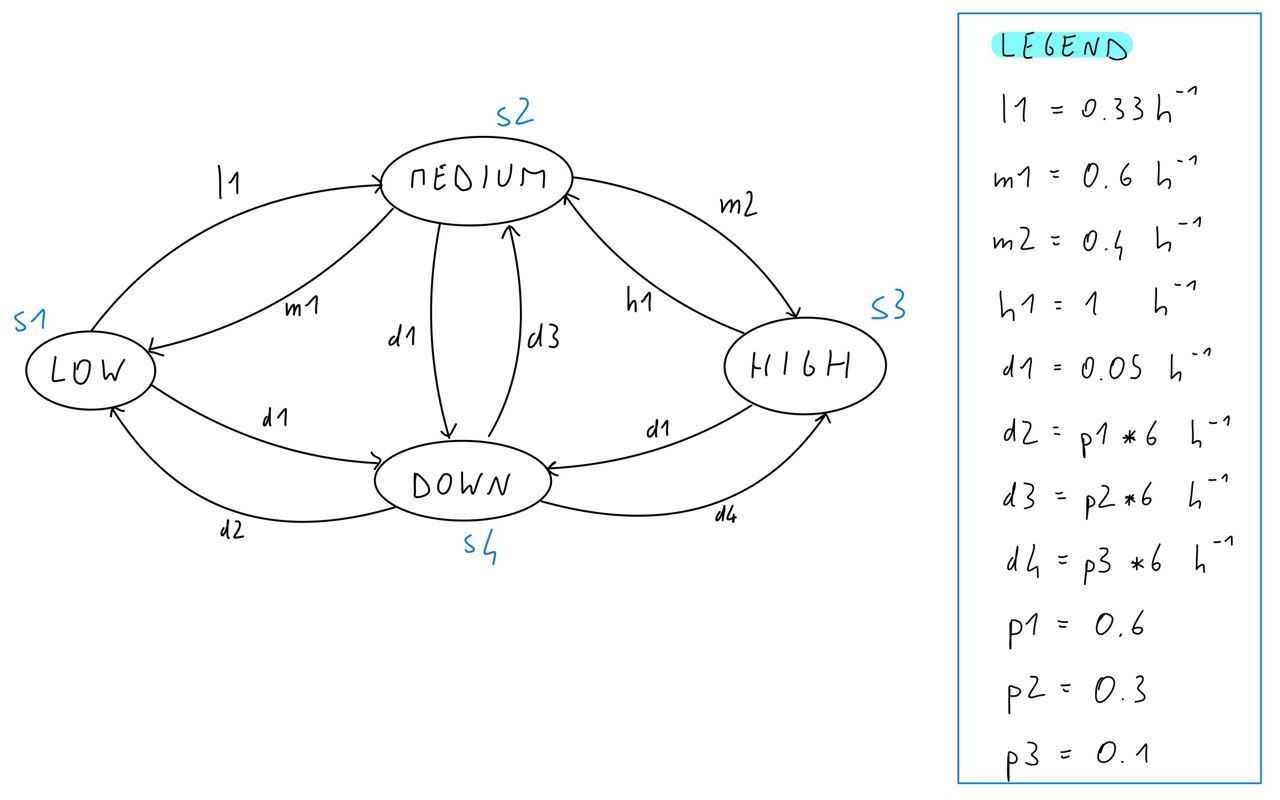 s2
MEDIUM
l1
m2
m1
h1
s1
s3
d1
d3
LOW
HIGH
d1
d1
DOWN
d2
d4
s4
LEGEND
l1 = 0.33 h⁻¹
m1 = 0.6 h⁻¹
m2 = 0.4 h⁻¹
h1 = 1 h⁻¹
d1 = 0.05 h⁻¹
d2 = p1 * 6 h⁻¹
d3 = p2 * 6 h⁻¹
d4 = p3 * 6 h⁻¹
p1 = 0.6
p2 = 0.3
p3 = 0.1